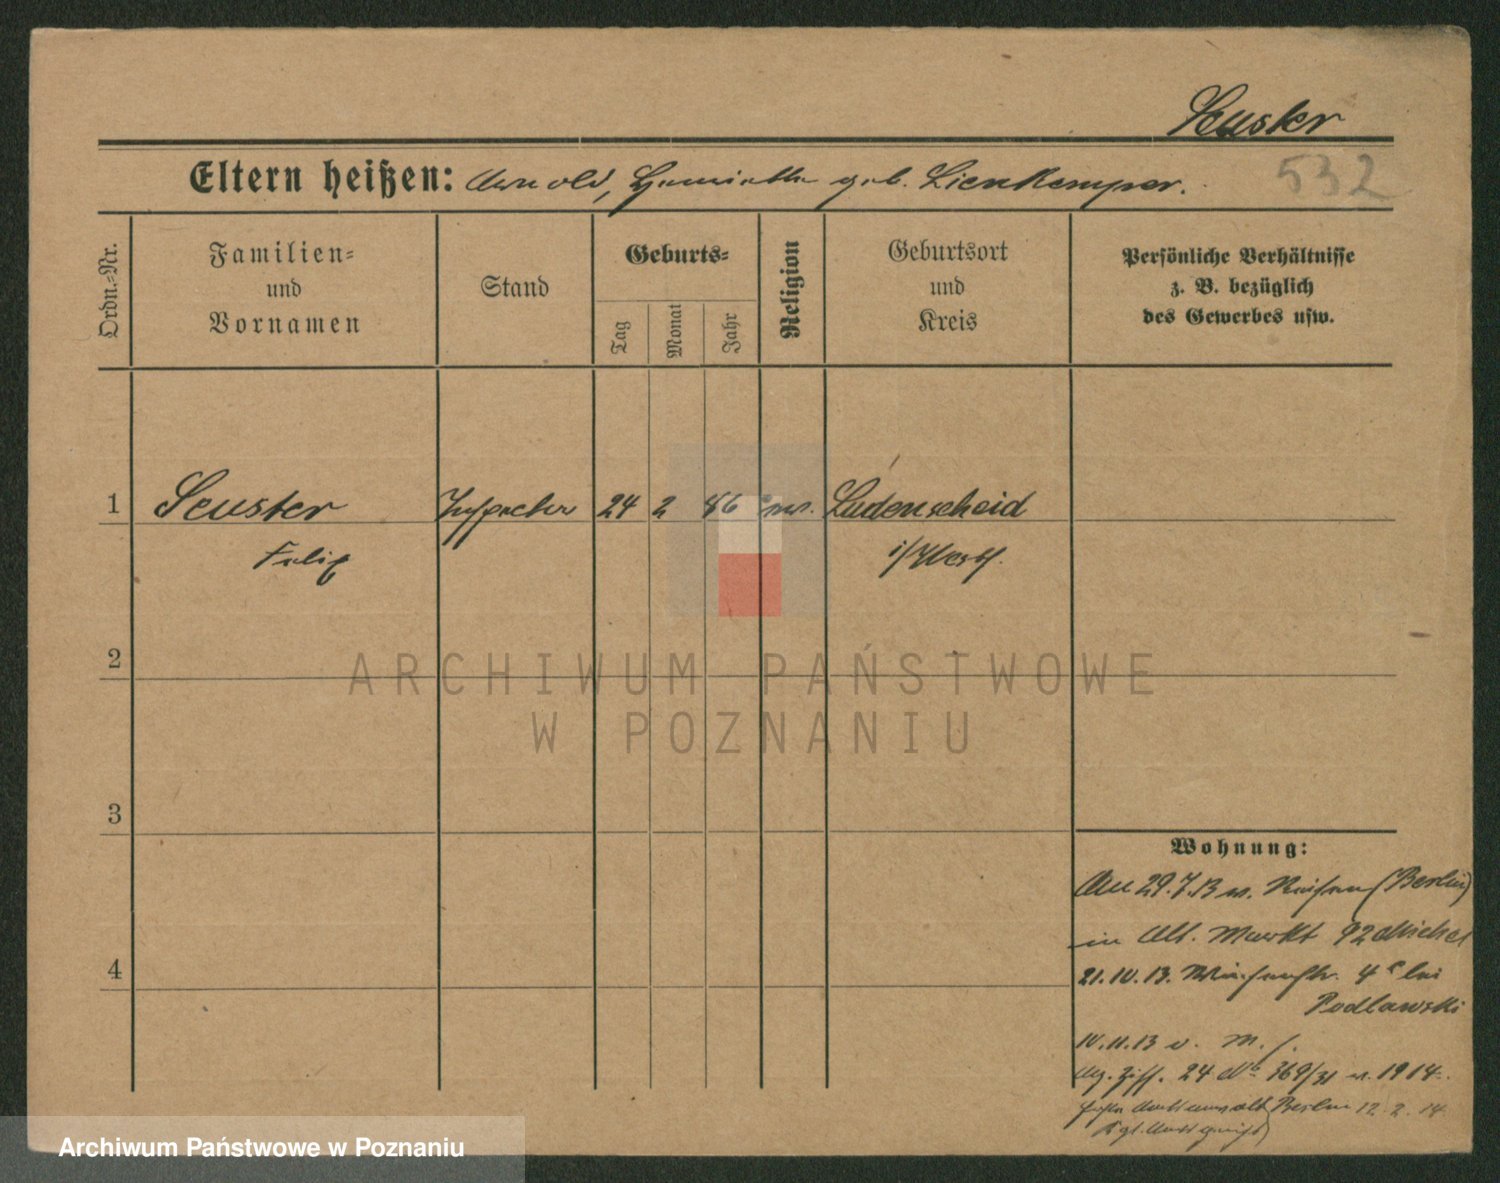 Seuster
532
Eltern heißen: Arnold, Henriette geb. Lienkemper.
Ordn.-Nr.
Familien-
und
Vornamen
Stand
Geburts-
Tag
Monat
Jahr
Religion
Geburtsort
und
Kreis
Persönliche Verhältnisse
z. B. bezüglich
des Gewerbes usw.
1 Seuster Inspektor 24 2 86 ev. Lüdenscheid
Felix i/Westf.
2
3
4
Wohnung:
29.7.13 v. (Berlin)
in Alt. Markt 92
21.10.13. 4 bei
Podlawski
10.11.13 v.
24 369/31 1914.
Berlin 12.2.14
ARCHIWUM PAŃSTWOWE
W POZNANIU
Archiwum Państwowe w Poznaniu